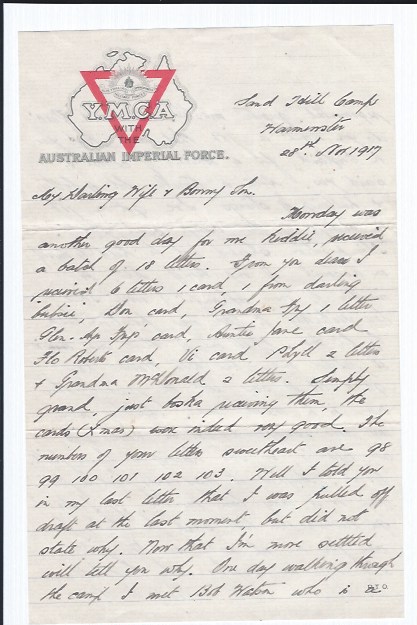 Y.M.C.A
WITH
THE
AUSTRALIAN IMPERIAL FORCE.
Sand Hill Camp
Warminster
28th. Nov 1917
My Darling Wife & Bonny Son.
Monday was
another good day for me Kiddie, received
a batch of 18 letters. From you dear I
received 6 letters 1 card, 1 from darling
, Don card, Grandma 1 letter
card, Auntie Jane card
Flo Roberts card, Vi card Phyll 2 letters
& Grandma McDonald 2 letters. Simply
grand, just boska receiving them, the
cards (Xmas) were indeed very good. The
numbers of your letters sweetheart are 98
99 100 101 102 103. Well I told you
in my last letter that I was pulled off
draft at the last moment, but did not
state why. Now that I'm more settled
will tell you why. One day walking through
the camp I met Bob who is a
P.T.O.